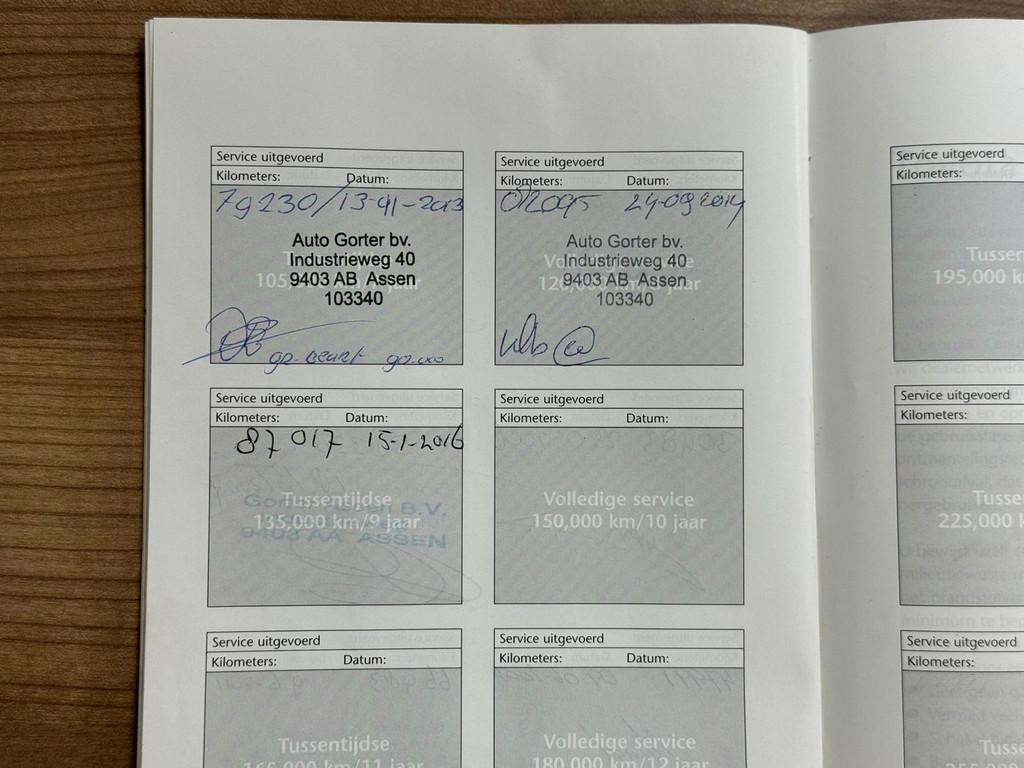 Service uitgevoerd
Kilometers: Datum:
79230/13-11-2013
Auto Gorter bv.
Industrieweg 40
9403 AB Assen
103340
Service uitgevoerd
Kilometers: Datum:
24-09-2014
Auto Gorter bv.
Industrieweg 40
9403 AB Assen
103340
Volledige service
120,000 km/8 jaar
Service uitgevoerd
Kilometers: Datum:
87 017 15-1-2016
Tussentijdse
135,000 km/9 jaar
B.V.
9403 AA ASSEN
Service uitgevoerd
Kilometers: Datum:
Volledige service
150,000 km/10 jaar
Service uitgevoerd
Kilometers: Datum:
Tussentijdse
165,000 km/11 jaar
Service uitgevoerd
Kilometers: Datum:
Volledige service
180,000 km/12 jaar
Service uitgevoerd
Kilometers:
Tussen
195,000 km
Service uitgevoerd
Kilometers:
Tusse
225,000 k
Service uitgevoerd
Kilometers:
Tusse